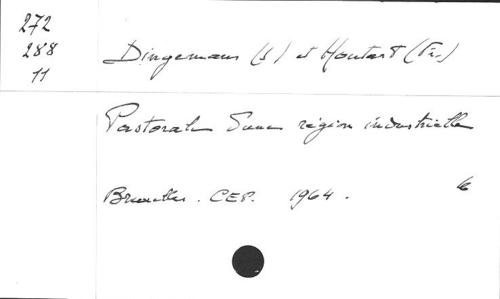 272
288
11
Dingemans (L) et Houtart (Fr.)
Pastorale d'une région industrielle
Bruxelles. CEP. 1964.